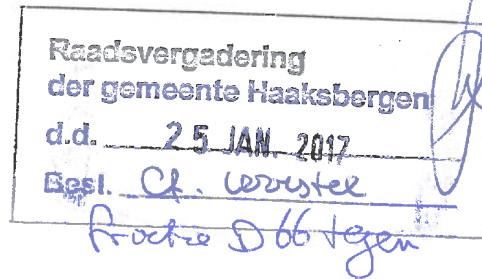 Raadsvergadering
der gemeente Haaksbergen
d.d. 25 JAN. 2017
Besl. Cf. voorstel
fractie D66 tegen